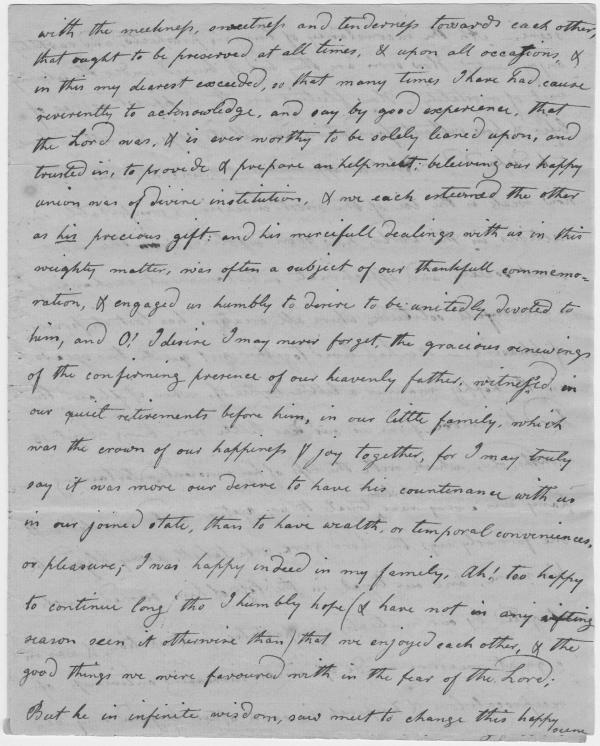 with the meekness, sweetness and tenderness towards each other,
that ought to be preserved at all times, & upon all occasions, &
in this my dearest exceeded, so that many times I have had cause
reverently to acknowledge, and say by good experience, that
the Lord was, & is ever worthy to be solely leaned upon, and
trusted in, to provide & prepare an helpmeet; beleiving our happy
union was of divine institution, & we each esteemed the other
as his precious gift; and his mercifull dealings with us in this
weighty matter, was often a subject of our thankfull commemo=
ration, & engaged us humbly to desire to be unitedly devoted to
him, and O! I desire I may never forget, the gracious renewings
of the confirming presence of our heavenly father, witnessed in
our quiet retirements before him, in our little family, which
was the crown of our happiness & joy together, for I may truly
say it was more our desire to have his countenance with us
in our joined state, than to have wealth, or temporal conveniences,
or pleasure; I was happy indeed in my family, Ah! too happy
to continue long tho I humbly hope (& have not in any sifting
season seen it otherwise than) that we enjoyed each other, & the
good things we were favoured with in the fear of the Lord;
But he in infinite wisdom, saw meet to change this happy
scene